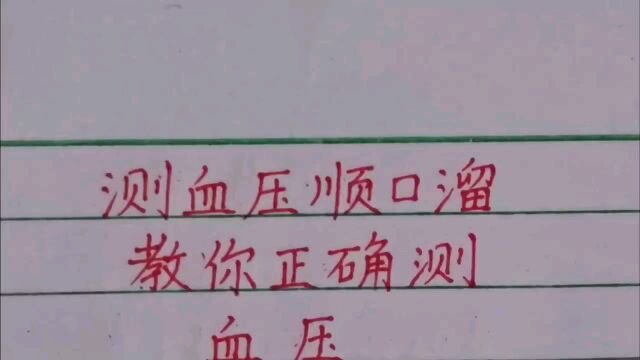 测血压顺口溜
教你正确测
血压